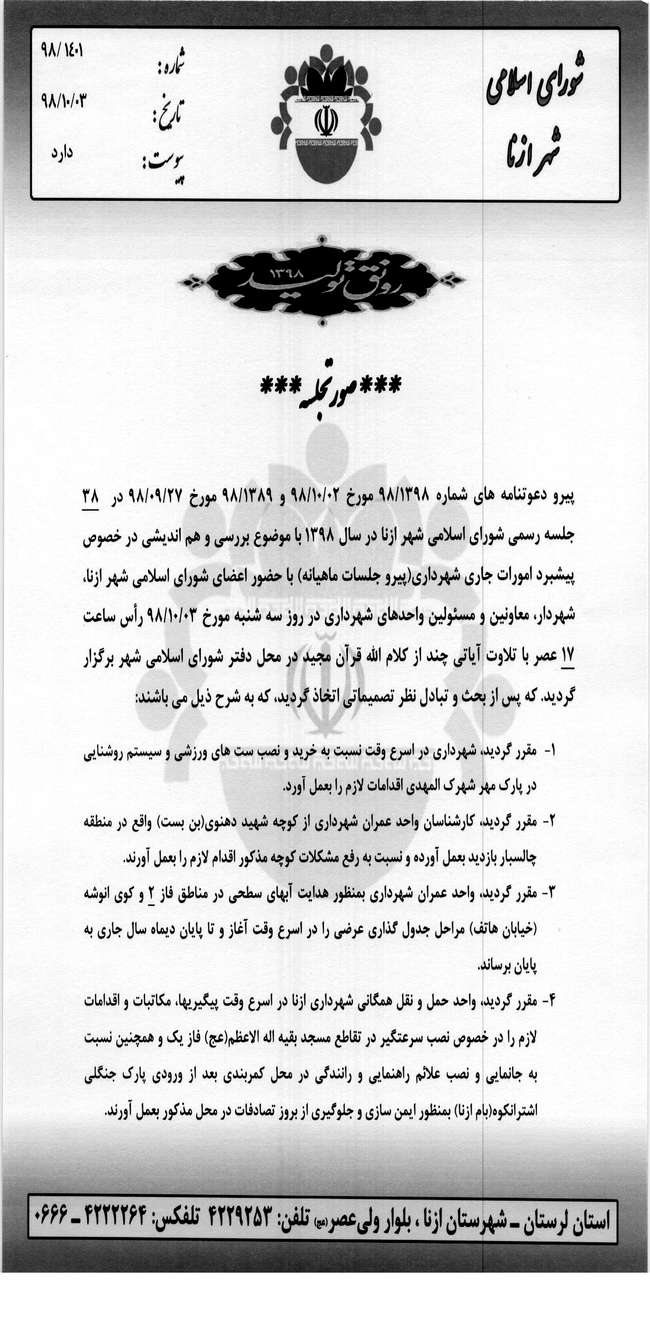 شورای اسلامی
شهر ازنا
شماره: ۹۸/۱۴۰۱
تاریخ: ۹۸/۱۰/۰۳
پیوست: دارد
رونق تولید ۱۳۹۸
***صورتجلسه***
پیرو دعوتنامه های شماره ۹۸/۱۳۹۸ مورخ ۹۸/۱۰/۰۲ و ۹۸/۱۳۸۹ مورخ ۹۸/۰۹/۲۷ در ۳۸
جلسه رسمی شورای اسلامی شهر ازنا در سال ۱۳۹۸ با موضوع بررسی و هم اندیشی در خصوص
پیشبرد امورات جاری شهرداری(پیرو جلسات ماهیانه) با حضور اعضای شورای اسلامی شهر ازنا،
شهردار، معاونین و مسئولین واحدهای شهرداری در روز سه شنبه مورخ ۹۸/۱۰/۰۳ رأس ساعت
۱۷ عصر با تلاوت آیاتی چند از کلام الله قرآن مجید در محل دفتر شورای اسلامی شهر برگزار
گردید. که پس از بحث و تبادل نظر تصمیماتی اتخاذ گردید، که به شرح ذیل می باشند:
۱- مقرر گردید، شهرداری در اسرع وقت نسبت به خرید و نصب ست های ورزشی و سیستم روشنایی
در پارک مهر شهرک المهدی اقدامات لازم را بعمل آورد.
۲- مقرر گردید، کارشناسان واحد عمران شهرداری از کوچه شهید دهنوی(بن بست) واقع در منطقه
چالسبار بازدید بعمل آورده و نسبت به رفع مشکلات کوچه مذکور اقدام لازم را بعمل آورند.
۳- مقرر گردید، واحد عمران شهرداری بمنظور هدایت آبهای سطحی در مناطق فاز ۲ و کوی انوشه
(خیابان هاتف) مراحل جدول گذاری عرضی را در اسرع وقت آغاز و تا پایان دیماه سال جاری به
پایان برساند.
۴- مقرر گردید، واحد حمل و نقل همگانی شهرداری ازنا در اسرع وقت پیگیریها، مکاتبات و اقدامات
لازم را در خصوص نصب سرعتگیر در تقاطع مسجد بقیه اله الاعظم(عج) فاز یک و همچنین نسبت
به جانمایی و نصب علائم راهنمایی و رانندگی در محل کمربندی بعد از ورودی پارک جنگلی
اشترانکوه(بام ازنا) بمنظور ایمن سازی و جلوگیری از بروز تصادفات در محل مذکور بعمل آورند.
استان لرستان ـ شهرستان ازنا ، بلوار ولی‌عصر(عج) تلفن: ۴۲۲۹۲۵۳ تلفکس: ۴۲۲۲۲۶۴ ـ ۰۶۶۶